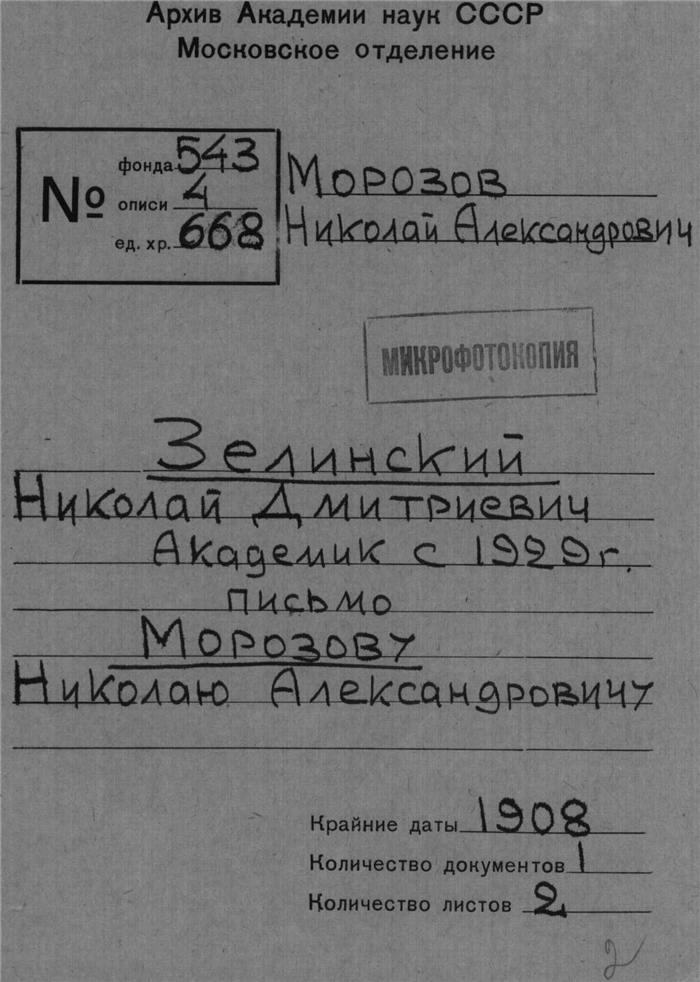 Архив Академии наук СССР
Московское отделение
№
фонда 543
описи 4
ед. хр. 668
Морозов
Николай Александрович
МИКРОФОТОКОПИЯ
Зелинский
Николай Дмитриевич
Академик с 1929 г.
письмо
Морозову
Николаю Александровичу
Крайние даты 1908
Количество документов 1
Количество листов 2
2